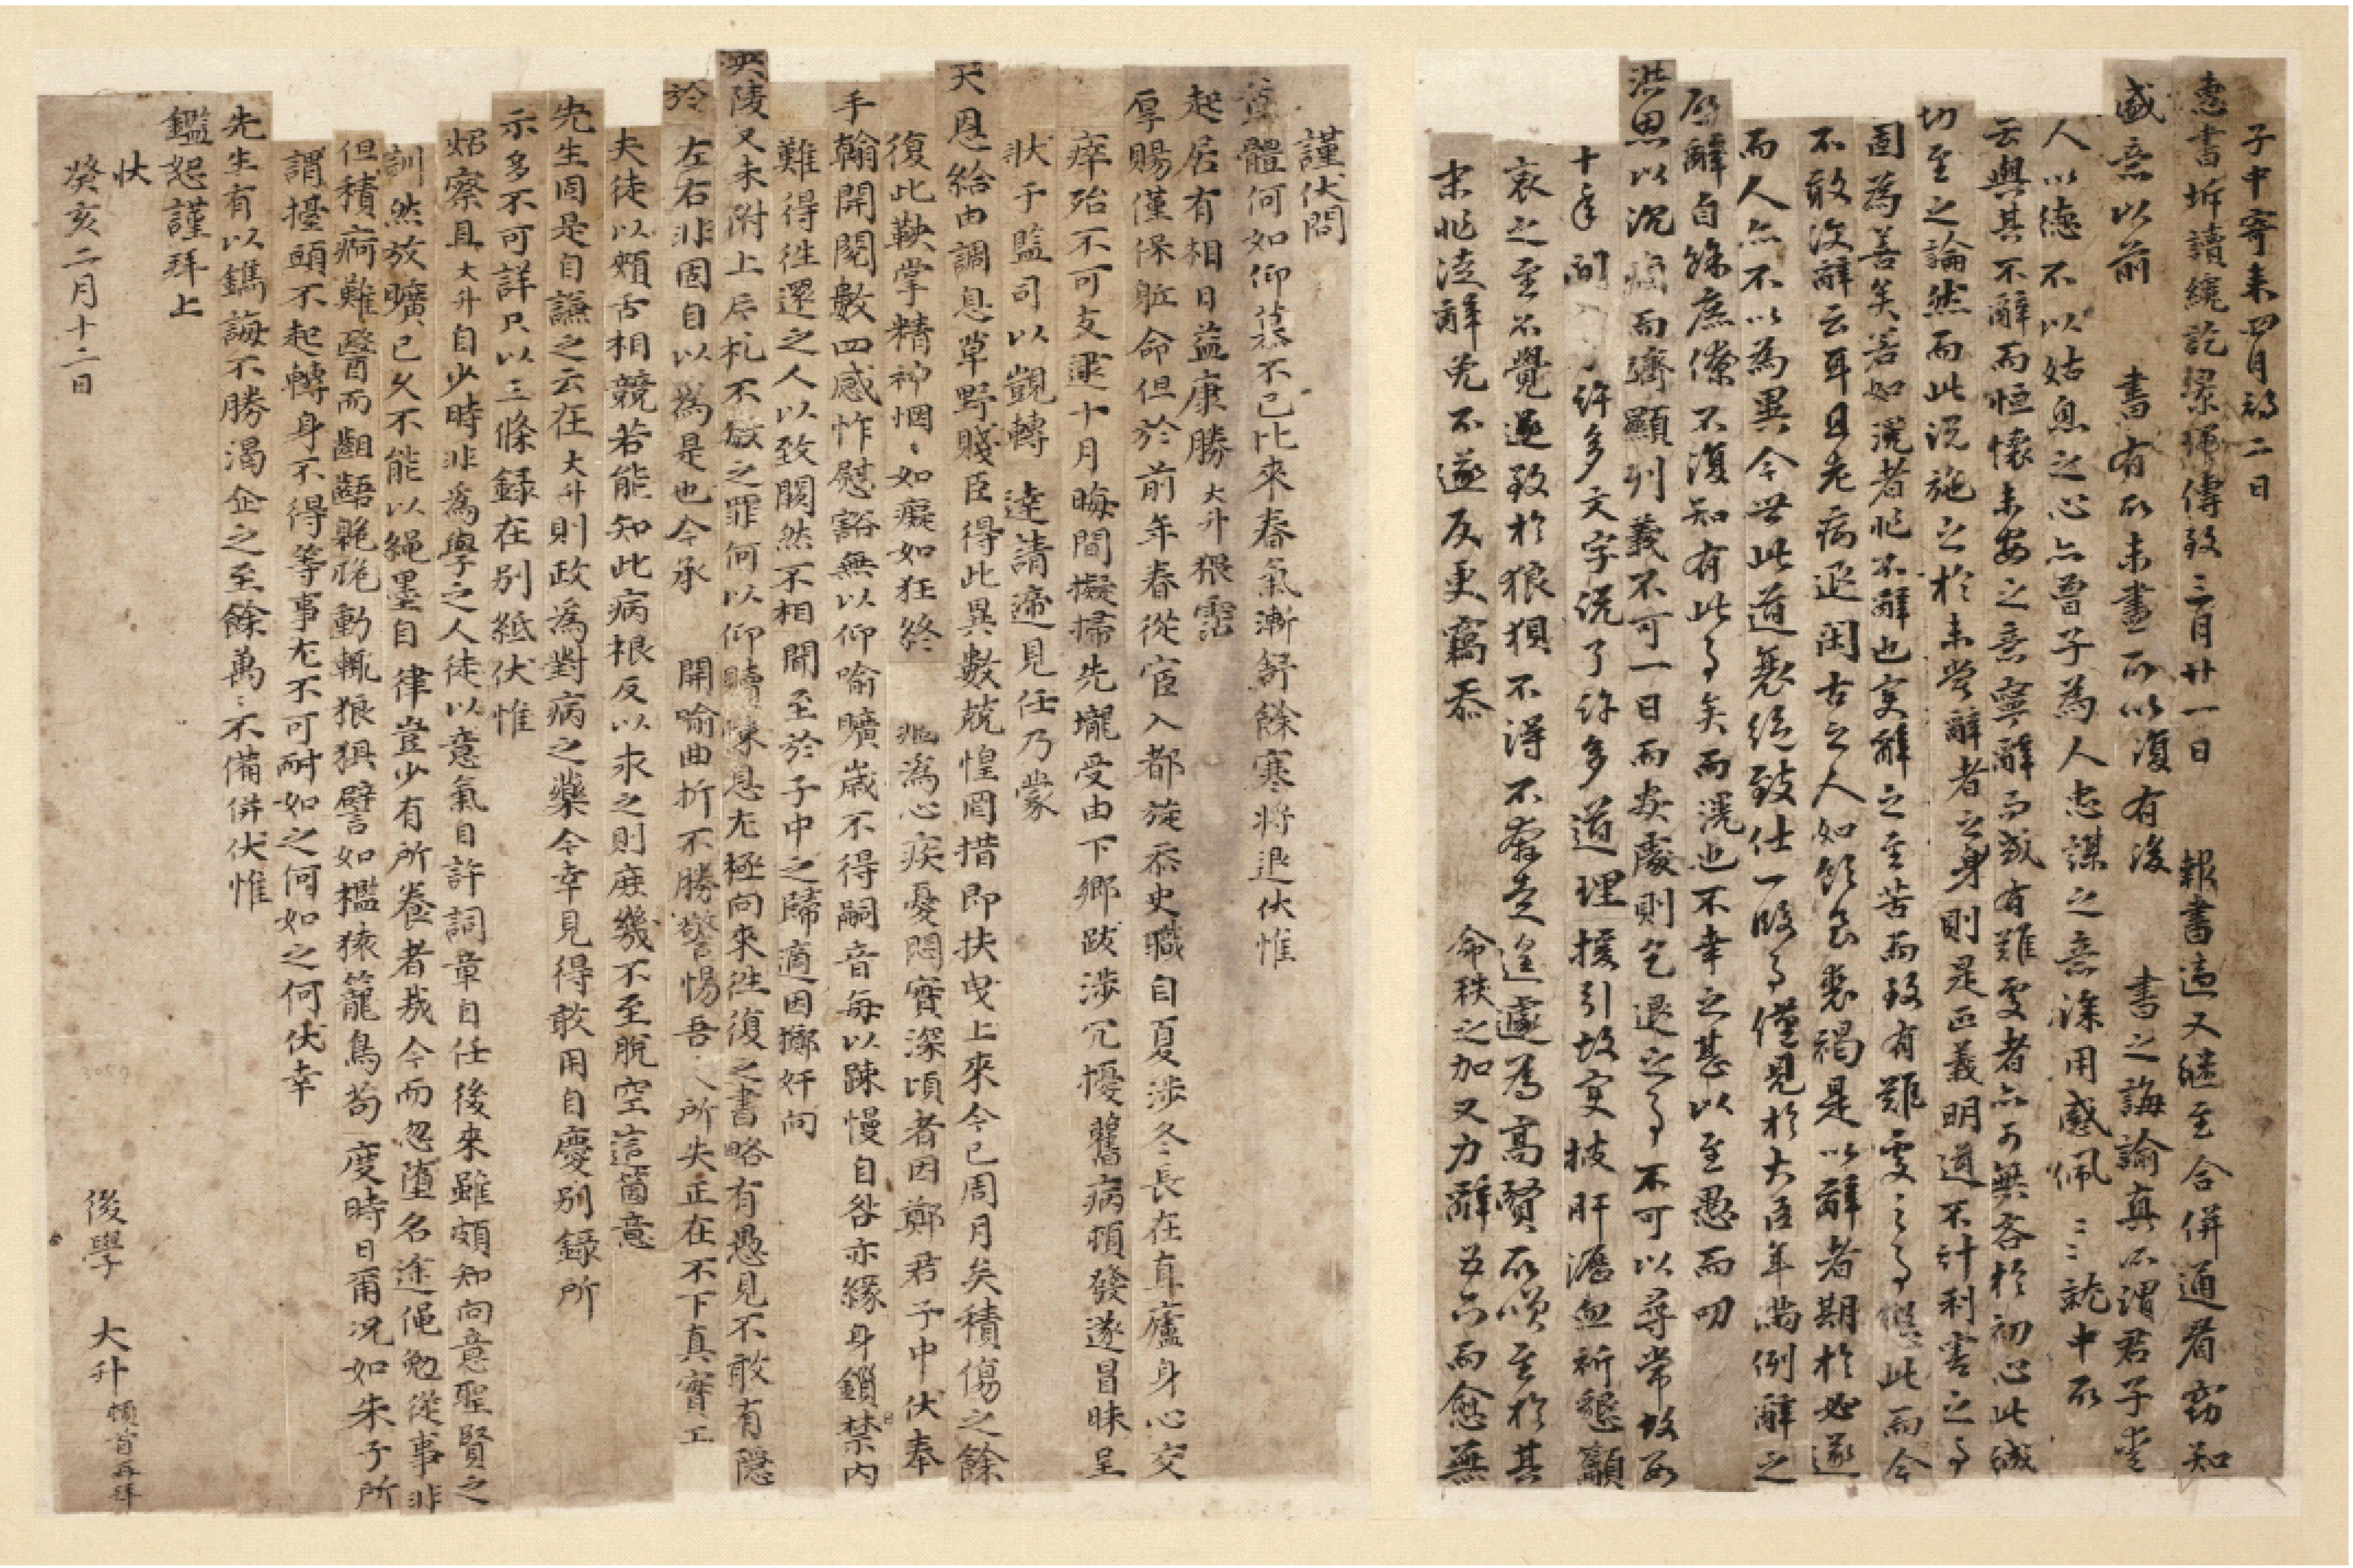 子中寄來四月初二日
惠書坼讀纔訖梁純傳致三月廿一日 報書適又繼至合併通看窮知
盛意以前 書有所未盡而以復有後 書之誨諭真所謂君子愛
人以德不以姑息之心亦曾子為人忠謀之意深用感佩〻〻就中所
云與其不辭而恒懷未安之意寧辭而或有難處者亦可無吝於初心此誠
切至之論然而此說施之於未嘗辭者之身則是正義明道不計利害之事
固為善矣若如滉者非不辭也實辭之至苦而致有難處之事僶此而今
不敢決辭云耳且老病退閑古之人如飢食裘褐是以辭者期於必遂
而人亦不以為異今世此道衰絕致仕一段事僅見於大臣年滿例辭之
辭自餘庶僚不復知有此事矣而滉也不幸之甚以至愚而叨
洪恩以沉痼而躋顯列義不可一日而安處則乞退之事不可以尋常故每
十年間 許多文字說了許多道理援引故實披肝瀝血祈懇籲
哀之至不覺返致於狼狽不得不奔走遑遽為高賢所嘆至於其
末非徒辭免不遂反更竊忝 命秩之加又力辭五六而愈無
謹伏問
尊體何如仰慕不已比來春氣漸舒餘寒將退伏惟
起居有相日益康勝大升猥霑
厚賜僅保軀命但於前年春從宦入都旋忝史職自夏涉冬長在直廬身心交
瘁殆不可支逮十月晦間擬掃先壠受由下鄉跋涉冗擾舊病頓發遂冒昧呈
狀于監司以覬轉 達請遞見任乃蒙
天恩給由調息草野賤臣得此異數兢惶罔措即扶曳上來今已周月矣積傷之餘
復此鞅掌精神惘〻如癡如狂終 非為心疾憂悶實深頃者因鄭君子中伏奉
手翰開閱數四感怍慰豁無以仰喻曠歲不得嗣音每以疎慢自咎亦緣身鎖禁內
難得往還之人以致闕然不相聞至於子中之歸適因擲奸向
英陵又未附上片札不敏之罪何以仰贖悚息尤極向來往復之書略有愚見不敢有隱
於 左右非固自以為是也今承 開喻曲折不勝警惕吾人所失正在不下真實工
夫徒以頰舌相競若能知此病根反以求之則庶幾不至脫空這箇意
先生固是自謙之云在大升則政為對病之藥今幸見得敢用自慶別錄所
示多不可詳只以三條錄在別紙伏惟
炤察且大升自少時非為學之人徒以意氣自許詞章自任後來雖頗知向意聖賢之
訓然放曠已久不能以繩墨自 律豈少有所養者哉今而忽墮名途僶勉從事非
但積病難醫而齟齬臲卼動輒狼狽譬如檻猿籠鳥苟度時日爾況如朱子所
謂擡頭不起轉身不得等事尤不可耐如之何如之何伏幸
先生有以鐫誨不勝渴企之至餘萬〻不備併伏惟
鑑恕謹拜上
伏
癸亥二月十二日
後學 大升 頓首再拜